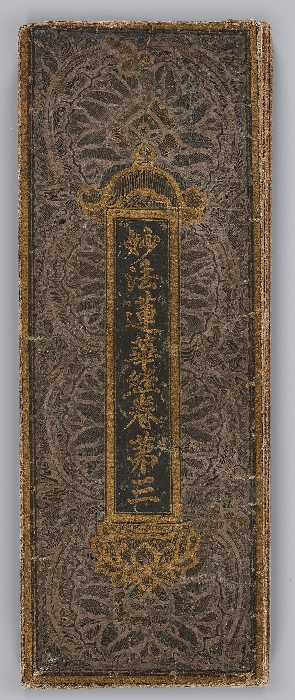 妙法蓮華經卷第三